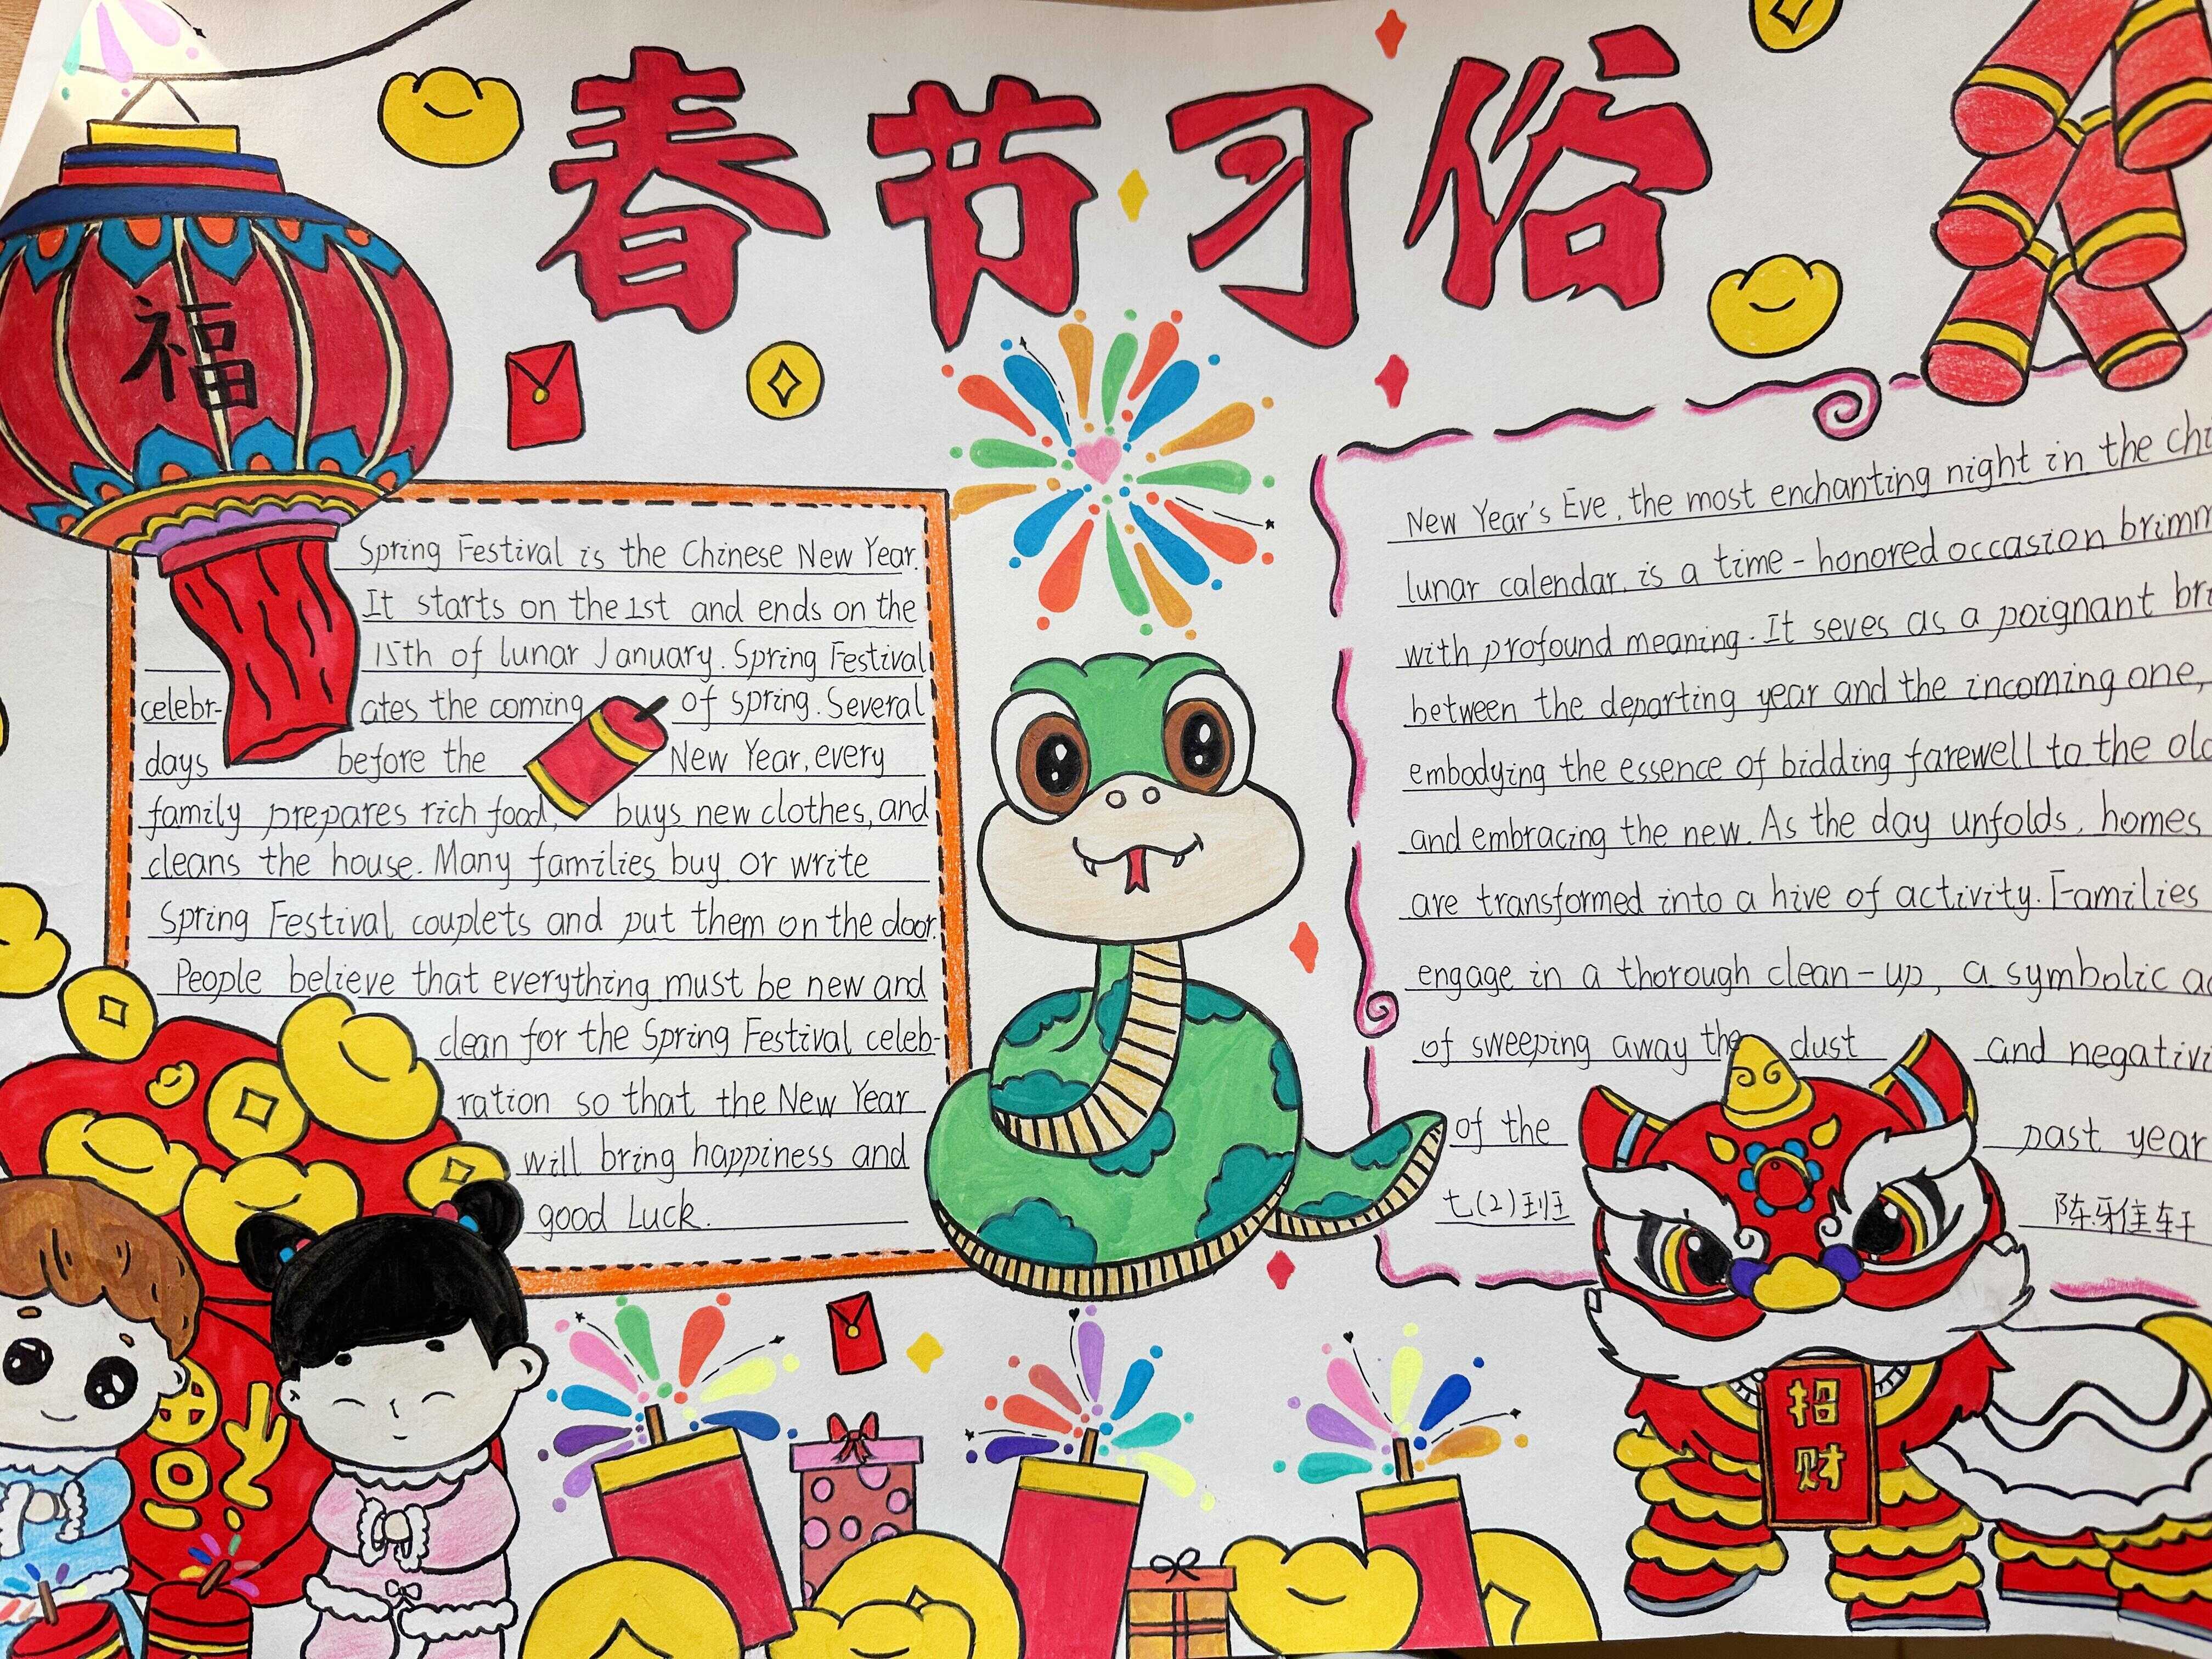 春节习俗
福
Spring Festival is the Chinese New Year.
It starts on the 1st and ends on the
15th of lunar January. Spring Festival
celebr- ates the coming of spring. Several
days before the New Year, every
family prepares rich food, buys new clothes, and
cleans the house. Many families buy or write
Spring Festival couplets and put them on the door.
People believe that everything must be new and
clean for the Spring Festival celeb-
ration so that the New Year
will bring happiness and
good Luck.
New Year's Eve, the most enchanting night in the
lunar calendar, is a time-honored occasion
with profound meaning. It seves as a poignant
between the departing year and the incoming one,
embodying the essence of bidding farewell to the
and embracing the new. As the day unfolds, homes
are transformed into a hive of activity. Families
engage in a thorough clean-up, a symbolic
of sweeping away the dust and
of the past year
七(2)班
招
财